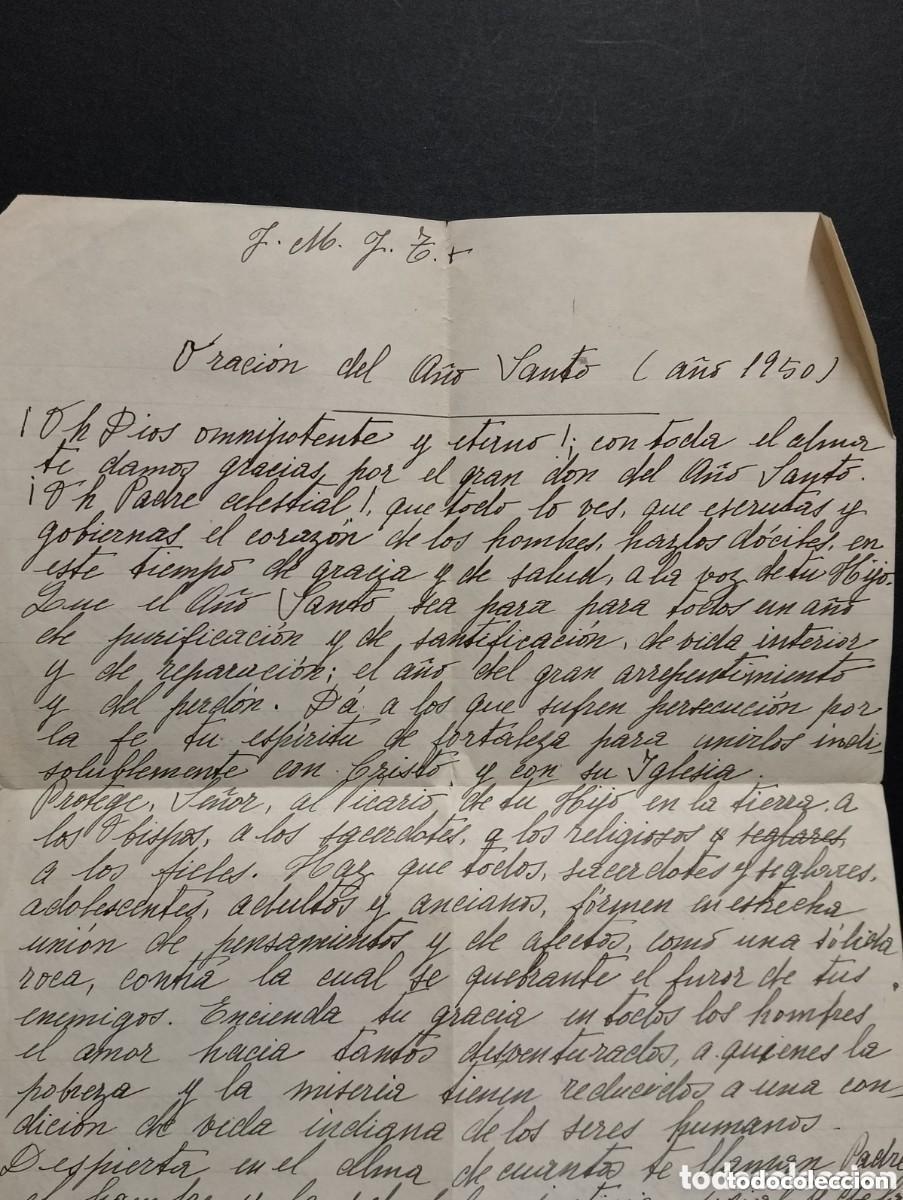 J. M. J. T. +
Oración del Año Santo (año 1950)
¡Oh Dios omnipotente y eterno!; con toda el alma
te damos gracias por el gran don del Año Santo.
¡Oh Padre celestial!, que todo lo ves, que escrutas y
gobiernas el corazón de los hombres, hazlos dóciles, en
este tiempo de gracia y de salud, a la voz de tu Hijo.
Que el Año Santo sea para para todos un año
de purificación y de santificación, de vida interior
y de reparación; el año del gran arrepentimiento
y del perdón. Dá a los que sufren persecución por
la fe tu espíritu de fortaleza para unirlos indi
solublemente con Cristo y con su Iglesia.
Protege, Señor, al Vicario de tu Hijo en la tierra, a
los Obispos, a los sacerdotes, a los religiosos y seglares,
a los fieles. Haz que todos, sacerdotes y seglares,
adolescentes, adultos y ancianos, formen en estrecha
unión de pensamientos y de afectos, como una sólida
roca, contra la cual se quebrante el furor de tus
enemigos. Encienda tu gracia en todos los hombres
el amor hacia tantos desventurados, a quienes la
pobreza y la miseria tienen reducidos a una con-
dición de vida indigna de los seres humanos.
Despierta en el alma de cuantos te llaman Padre
el hambre y la
todocoleccion